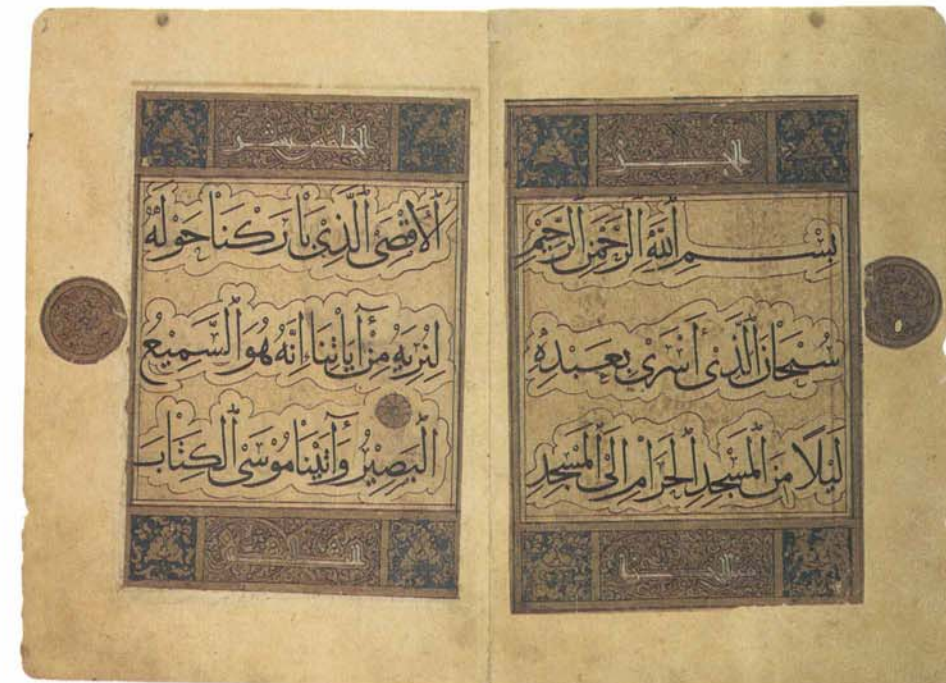 الجزء
بِسْمِ ٱللَّهِ ٱلرَّحْمَٰنِ ٱلرَّحِيمِ
سُبْحَانَ ٱلَّذِى أَسْرَىٰ بِعَبْدِهِ
لَيْلًا مِنَ ٱلْمَسْجِدِ ٱلْحَرَامِ إِلَى ٱلْمَسْجِدِ
من اجزا
الخامس عشر
ٱلْأَقْصَى ٱلَّذِى بَارَكْنَا حَوْلَهُ
لِنُرِيَهُ مِنْ آيَاتِنَا إِنَّهُ هُوَ ٱلسَّمِيعُ
ٱلْبَصِيرُ وَآتَيْنَا مُوسَى ٱلْكِتَابَ